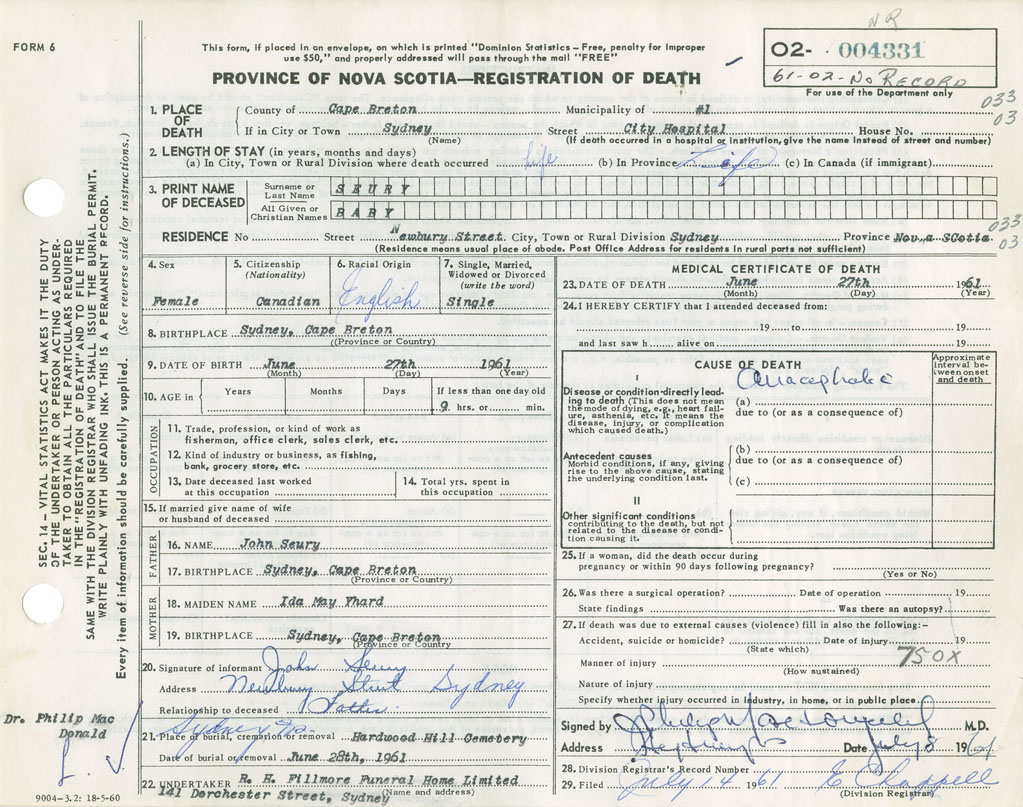 NR
FORM 6
This form, if placed in an envelope, on which is printed "Dominion Statistics – Free, penalty for improper
use $50," and properly addressed will pass through the mail "FREE"
PROVINCE OF NOVA SCOTIA—REGISTRATION OF DEATH
O2- 004331
61-02-No RECORD
For use of the Department only
033
03
SEC. 14 – VITAL STATISTICS ACT MAKES IT THE DUTY
OF THE UNDERTAKER OR PERSON ACTING AS UNDER-
TAKER TO OBTAIN ALL THE PARTICULARS REQUIRED
IN THE "REGISTRATION OF DEATH" AND TO FILE THE
SAME WITH THE DIVISION REGISTRAR WHO SHALL ISSUE THE BURIAL PERMIT.
WRITE PLAINLY WITH UNFADING INK. THIS IS A PERMANENT RECORD.
Every item of information should be carefully supplied. (See reverse side for instructions.)
1. PLACE OF DEATH
County of Cape Breton Municipality of #1
If in City or Town Sydney Street City Hospital House No.
(Name) (If death occurred in a hospital or institution, give the name instead of street and number)
2. LENGTH OF STAY (in years, months and days)
(a) In City, Town or Rural Division where death occurred Life (b) In Province Life (c) In Canada (if immigrant)
3. PRINT NAME OF DECEASED
Surname or Last Name SEURY
All Given or Christian Names BABY
033
03
RESIDENCE No Street Newbury Street. City, Town or Rural Division Sydney Province Nova Scotia
(Residence means usual place of abode. Post Office Address for residents in rural parts not sufficient)
4. Sex Female
5. Citizenship (Nationality) Canadian
6. Racial Origin English
7. Single, Married, Widowed or Divorced (write the word) Single
8. BIRTHPLACE Sydney, Cape Breton
(Province or Country)
9. DATE OF BIRTH June 27th 1961
(Month) (Day) (Year)
10. AGE in Years Months Days If less than one day old
9 hrs. or min.
OCCUPATION
11. Trade, profession, or kind of work as
fisherman, office clerk, sales clerk, etc.
12. Kind of industry or business, as fishing,
bank, grocery store, etc.
13. Date deceased last worked
at this occupation
14. Total yrs. spent in
this occupation
15. If married give name of wife
or husband of deceased
FATHER
16. NAME John Seury
17. BIRTHPLACE Sydney, Cape Breton
(Province or Country)
MOTHER
18. MAIDEN NAME Ida May Yhard
19. BIRTHPLACE Sydney, Cape Breton
(Province or Country)
20. Signature of informant John Seury
Address Newbury Street Sydney
Relationship to deceased Father
Sydney
21. Place of burial, cremation or removal Hardwood Hill Cemetery
Date of burial or removal June 28th, 1961
22. UNDERTAKER R. H. Fillmore Funeral Home Limited
(Name and address)
41 Dorchester Street, Sydney
Dr. Philip Mac
Donald
9004-3.2: 18-5-60
MEDICAL CERTIFICATE OF DEATH
23. DATE OF DEATH June 27th 1961
(Month) (Day) (Year)
24. I HEREBY CERTIFY that I attended deceased from:
19 to 19
and last saw h alive on 19
CAUSE OF DEATH
Approximate interval between onset and death
I
Disease or condition directly lead-
ing to death (This does not mean
the mode of dying, e.g., heart fail-
ure, asthenia, etc. It means the
disease, injury, or complication
which caused death.)
(a)
due to (or as a consequence of)
Antecedent causes
Morbid conditions, if any, giving
rise to the above cause, stating
the underlying condition last.
(b)
due to (or as a consequence of)
(c)
II
Other significant conditions
contributing to the death, but not
related to the disease or condi-
tion causing it.
25. If a woman, did the death occur during
pregnancy or within 90 days following pregnancy?
(Yes or No)
26. Was there a surgical operation? Date of operation 19
State findings Was there an autopsy?
27. If death was due to external causes (violence) fill in also the following:–
Accident, suicide or homicide? Date of injury 19
(State which)
750X
Manner of injury
(How sustained)
Nature of injury
Specify whether injury occurred in industry, in home, or in public place
Signed by M.D.
Address Date July 5 1961
28. Division Registrar's Record Number
29. Filed July 14 1961 E Chappell
(Division Registrar)